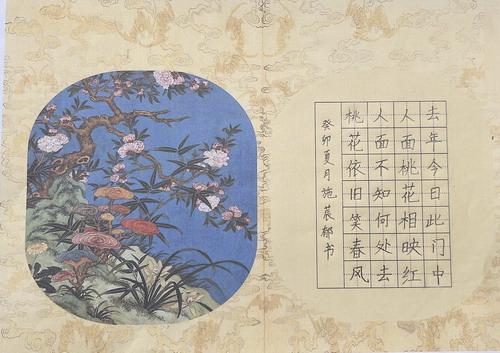 去年今日此门中
人面桃花相映红
人面不知何处去
桃花依旧笑春风
癸卯夏月施晨郁书